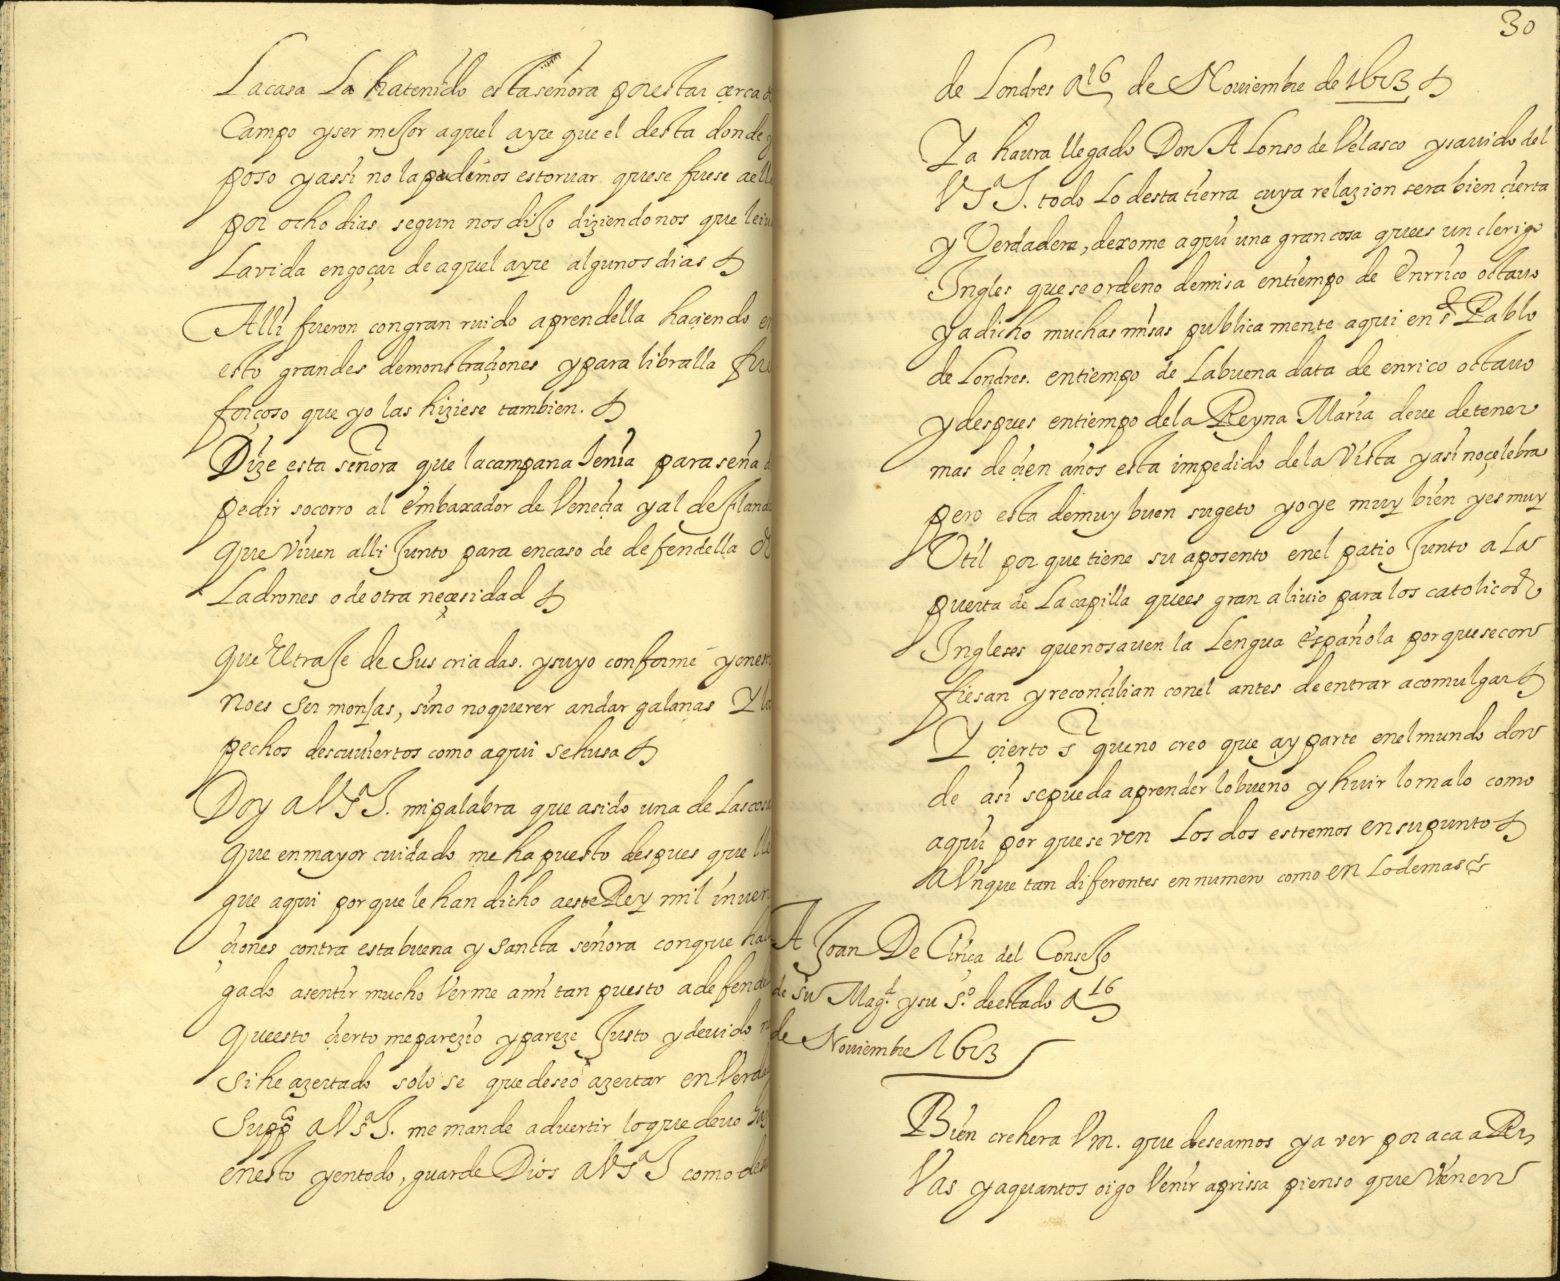 La casa La ha tenido esta señora por estar çerca
Campo y ser mejor aquel ayre que el desta donde
poso y assi no la pudimos estoruar que se fuese a
por ocho dias segun nos dijo diziendonos que le
La vida en goçar de aquel ayre algunos dias
Alli fueron con gran ruido a prendella haçiendo en
esto grandes demonstraçiones y para libralla
forçoso que yo las hiziese tambien.
Dize esta señora que la campana tenia para seña
pedir socorro al embaxador de Veneçia y al de fland
que viven alli junto para en caso de defendella de
Ladrones o de otra neçesidad
que el traje de sus criadas. y suyo conforme
no es ser monjas, sino no querer andar galanas Y
pechos descuuiertos como aqui se husa
Doy a VSJ. mi palabra que a sido una de Las cosas
que en mayor cuidado me ha puesto despues que
que aqui por que le han dicho a este Rey mil inven
çiones contra esta buena y sancta señora con que ha
gado a sentir mucho verme a mi tan puesto a defende
que esto çierto me parezio y pareze justo y deuido
si he azertado solo se que deseo azertar en Verdad
Suppco a VSJ. me mande advertir lo que deuo
en esto y en todo, guarde Dios a VSJ como
30
de Londres a 16 de Nouiembre de 1613
Ya haura llegado Don Alonso de Velasco y sauido del
VSJ. todo Lo desta tierra cuya relazion sera bien çierta
y Verdadera, dexome aqui una gran cosa que es un clerigo
Ingles que se ordeno de misa en tiempo de Enrrico octauo
y a dicho muchas misas publicamente aqui en S. Pablo
de Londres. en tiempo de La buena data de enrico octauo
y despues en tiempo de la Reyna Maria deue de tener
mas de çien años esta impedido de la Vista y asi no çelebra
pero esta de muy buen sugeto y oye muy bien y es muy
Vtil por que tiene su aposento en el patio junto a La
puerta de La capilla que es gran aliuio para los catolicos
Ingleses que no sauen la Lengua española por que se con
fiesan y reconçilian con el antes de entrar a comulgar
Y çierto sr que no creo que ay parte en el mundo don
de asi se pueda aprender lo bueno y huir lo malo como
aqui por que se ven Los dos estremos en su punto
aVnque tan diferentes en numero como en Lo demas
A Joan De Ciriça del Consejo
de su Magd. y su So. de estado a 16
de Nouiembre 1613
Bien crehera Vm. que deseamos ya ver por aca a
Vas y a quantos oigo Venir aprissa pienso que Vienen